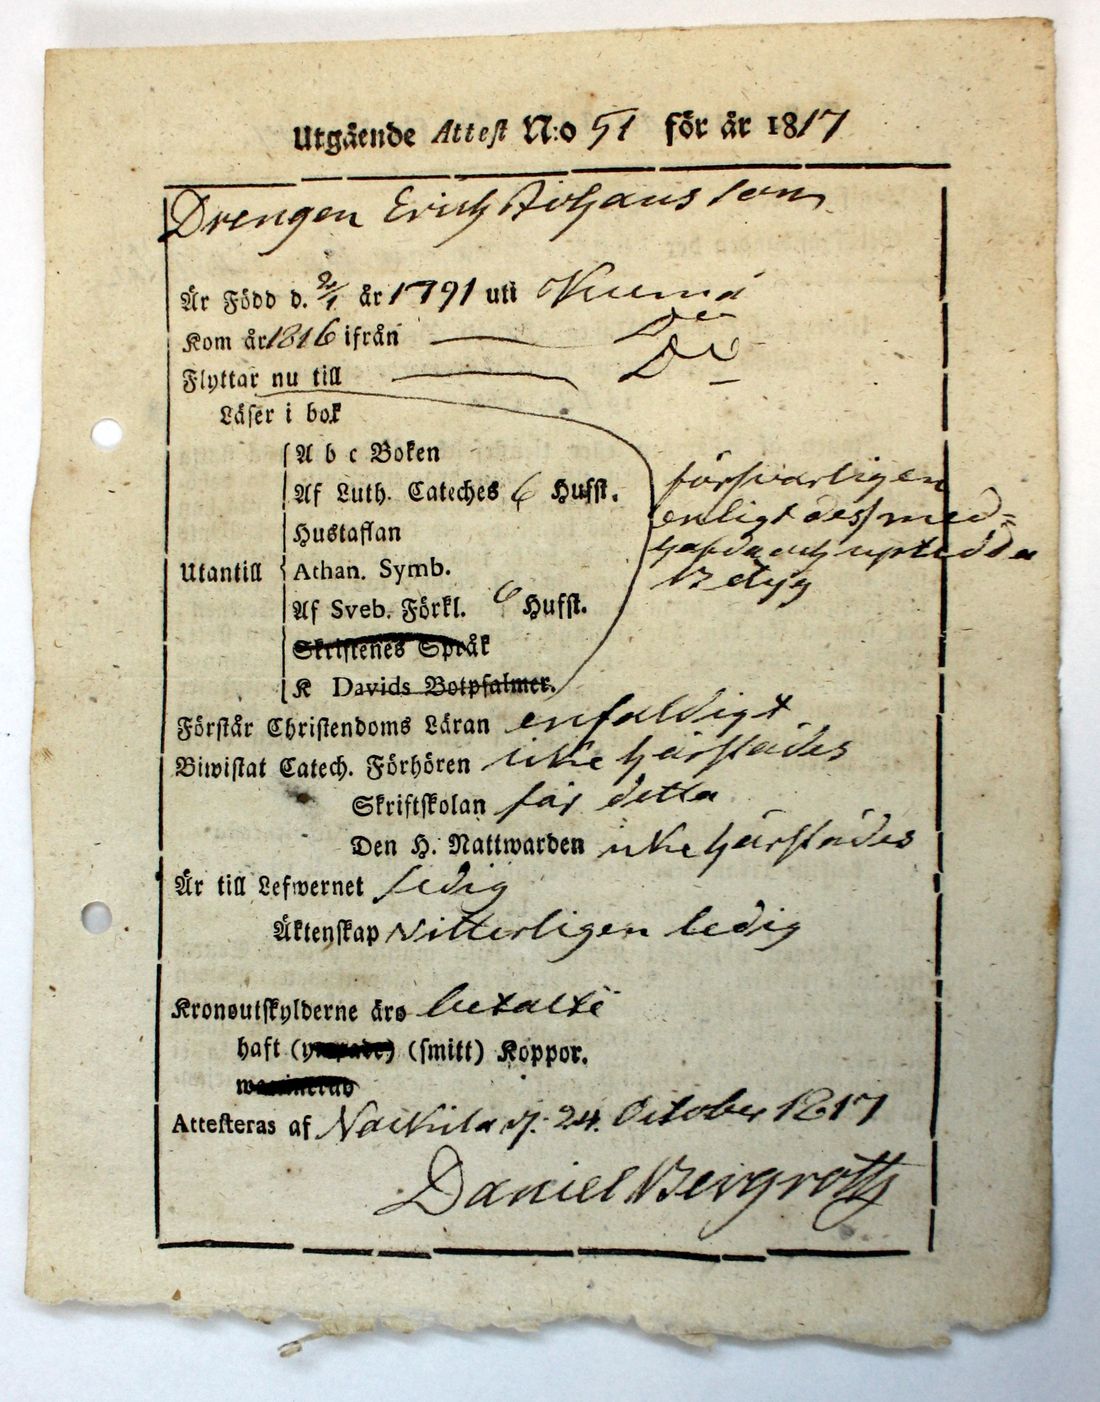 Utgående Attest N:o 51 för år 1817
Drengen Erich Johansson
Är Född d. 2/1 år 1791 uti Kumå
Kom år 1816 ifrån — Dº
Flyttar nu till — Dº
Läser i bok
A b c Boken
Af Luth. Cateches 6 Hufst. försvarligen
enligt dess med-
Hustaflan
hafda och uptedda
Utantill Athan. Symb.
Betyg
Af Sveb. Förkl. 6 Hufst.
Skriftenes Språk
K Davids Botpsalmer.
Förstår Christendoms Läran enfaldigt
Biwistat Catech. Förhören icke härstädes
Skriftskolan för detta
Den H. Nattwarden icke härstädes
Är till Lefwernet sedig
Äktenskap Vitterligen ledig
Kronoutskylderne äro betalte
haft (smitt) Koppor.
Attesteras af Nackila d. 24. October 1817
Daniel Bergroth